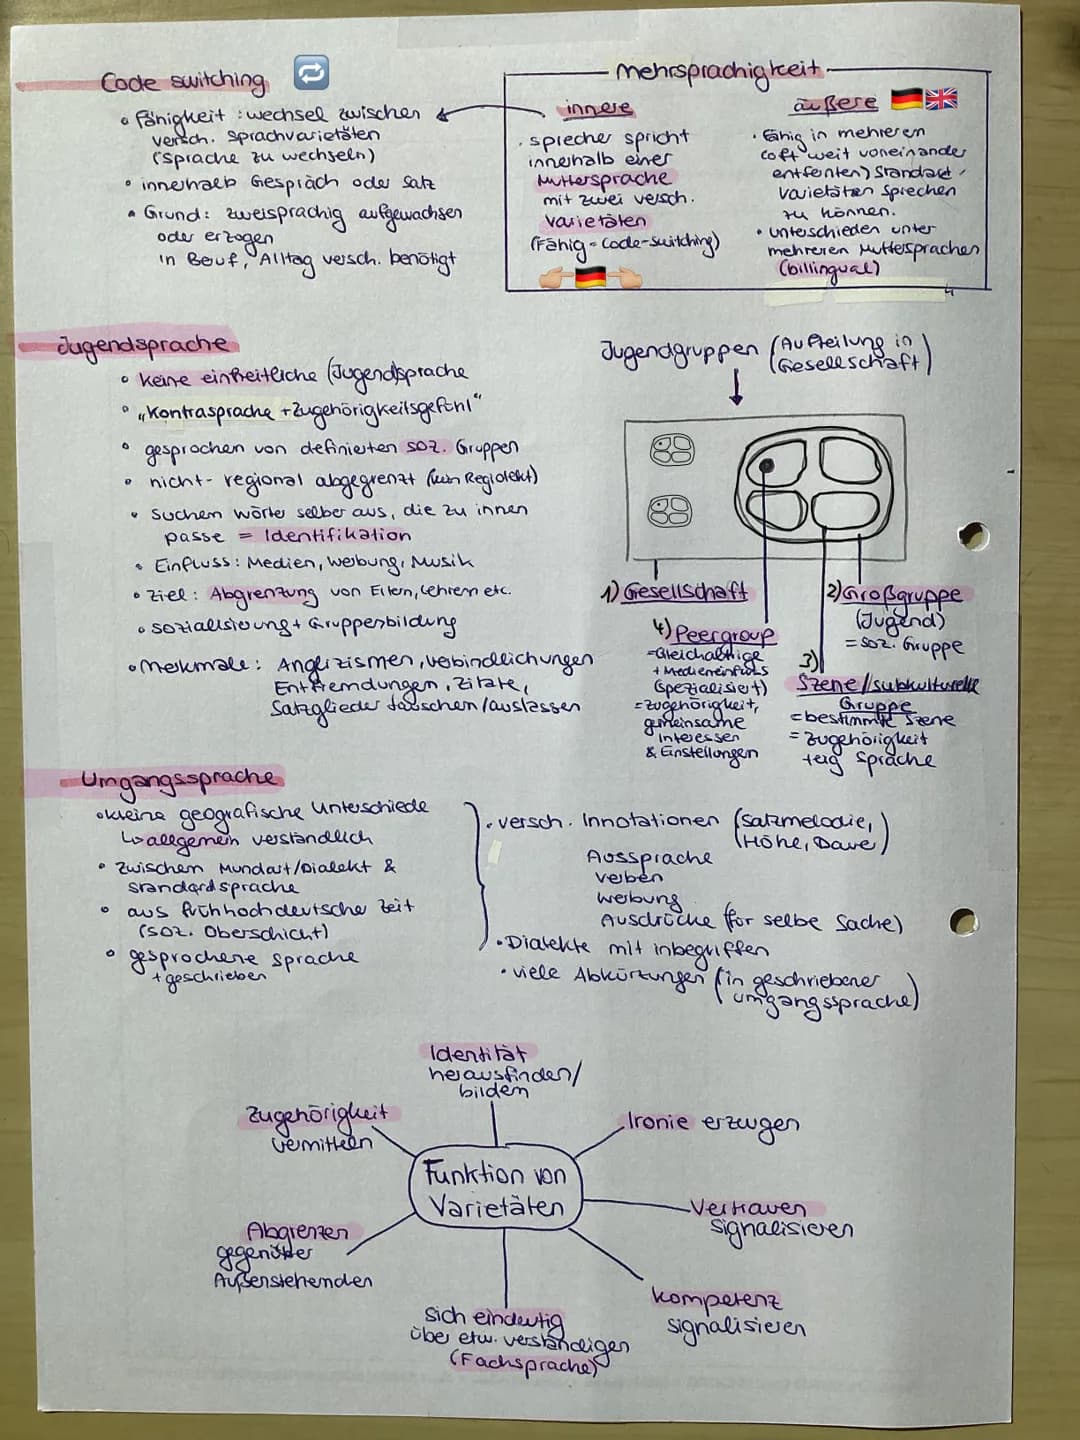 Code switching
• Fähigkeit : wechsel zwischen
versch. Sprachvarietäten
(Sprache zu wechseln)
• innerhalb Gespräch oder Satz
• Grund: zweisprachig aufgewachsen
oder erzogen
in Beruf, Alltag versch. benötigt
Mehrsprachigkeit
innere
• sprecher spricht
innerhalb einer
Muttersprache
mit zwei versch.
Varietäten
(Fähig = Code-switching)
äußere
• Fähig in mehreren
(oft weit voneinander
entfernten) Standard-
varietäten sprechen
zu können.
• unterschieden unter
mehreren Muttersprachen
(billingual)
Jugendsprache
• keine einheitliche (Jugend)sprache
• „Kontrasprache + Zugehörigkeitsgefühl"
• gesprochen von definierten soz. Gruppen
• nicht- regional abgegrenzt (kein Regiolekt)
• suchen wörter selber aus, die zu innen
passe = Identifikation
• Einfluss: Medien, Werbung, Musik
• Ziel: Abgrenzung von Eltern, Lehrern etc.
• sozialisierung + Gruppenbildung
• Merkmale: Anglizismen, verbindlichungen
Entfremdungen, Zitate,
Satzglieder tauschen/auslassen
Jugendgruppen (Aufteilung in
Gesellschaft)
1) Gesellschaft
2) Großgruppe
(Jugend)
= soz. Gruppe
4) Peergroup
= Gleichaltrige
+ Medieneinfluss
(spezialisiert)
= Zugehörigkeit,
gemeinsame
Interessen
& Einstellungen
3)
Szene/subkulturelle
Gruppe
= bestimmte Szene
= Zugehörigkeit
+ eig Sprache
Umgangssprache
• kleine geografische Unterschiede
↳ allgemein verständlich
• zwischen Mundart/Dialekt &
standardsprache
• aus frühhochdeutsche Zeit
(soz. Oberschicht)
• gesprochene sprache
+ geschrieben
• versch. Innotationen (Satzmelodie,
Höhe, Dauer)
Aussprache
verben
werbung
Ausdrücke (für selbe Sache)
• Dialekte mit inbegriffen
• viele Abkürzungen (in geschriebener
umgangssprache)
Identität
herausfinden/
bilden
Zugehörigkeit
vermitteln
Ironie erzeugen
Funktion von
Varietäten
Vertrauen
signalisieren
Abgrenzen
gegenüber
Außenstehenden
Kompetenz
signalisieren
sich eindeutig
über etw. verständigen
(Fachsprache)